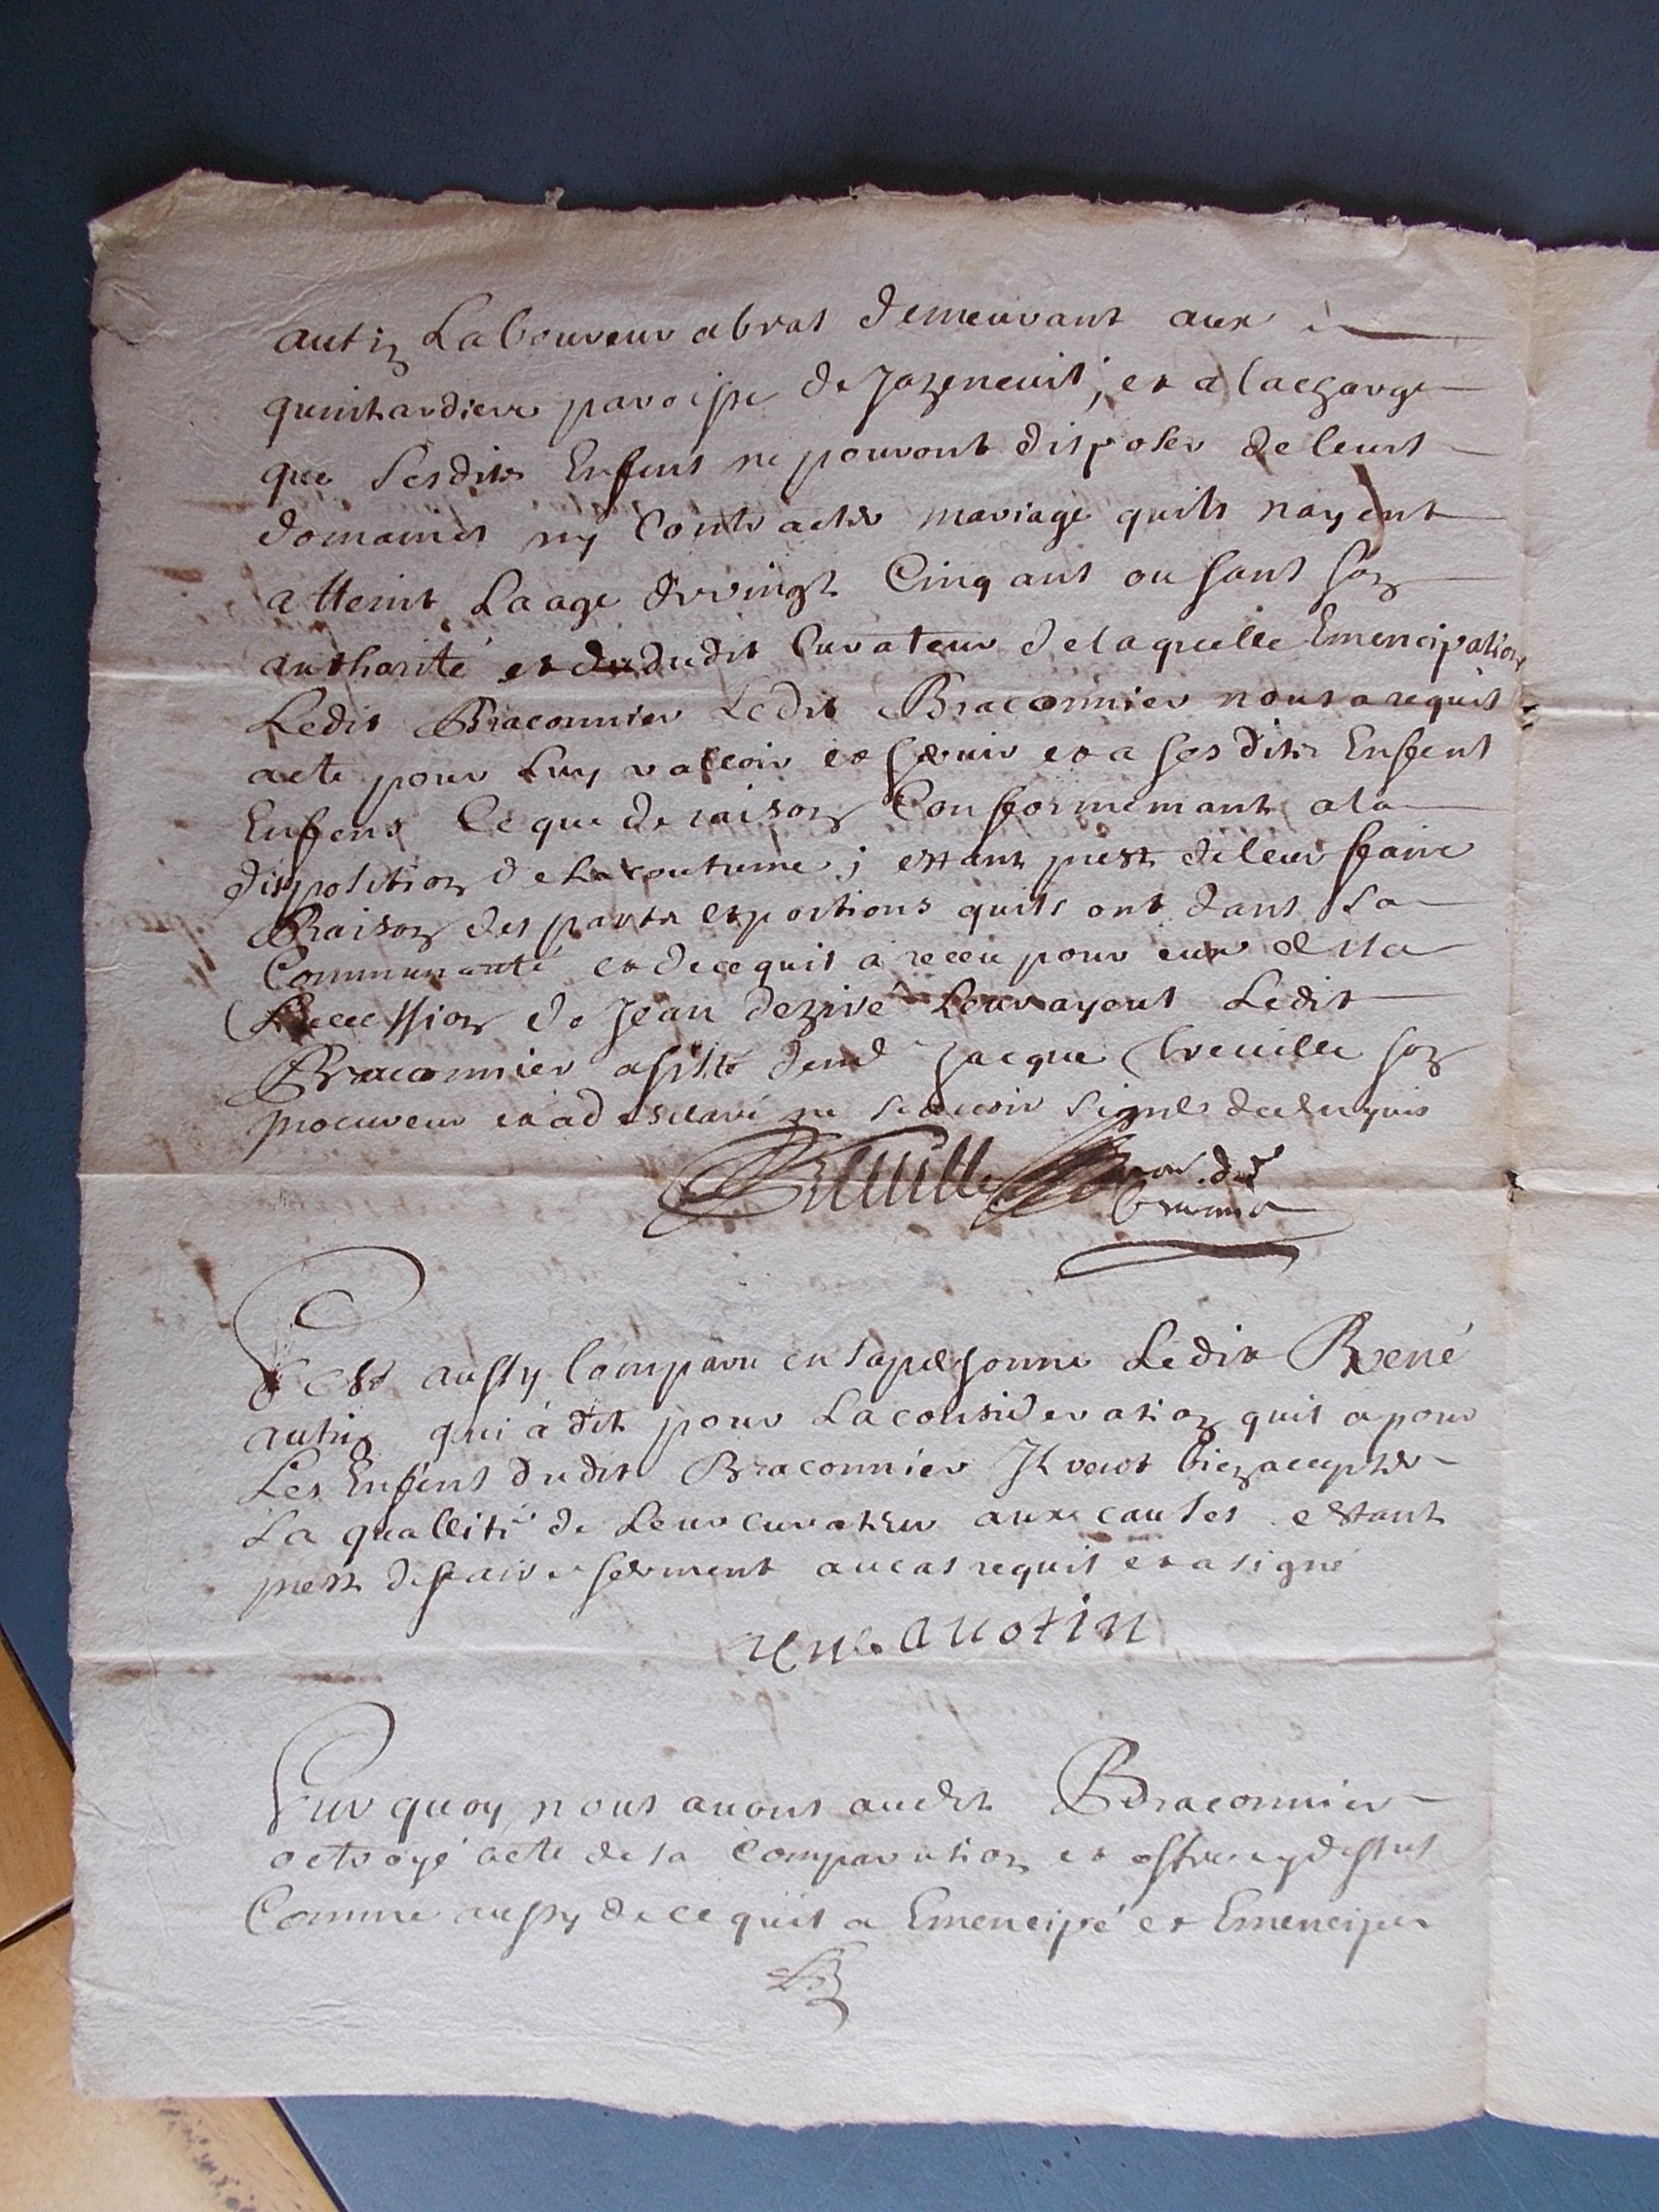 autin Laboureur a bras demeurant aux
quinhardiere paroisse de Jazeneuil; et a la charge
que sesdits Enfens ne pouront disposer de leurs
domaines ny Contracter mariage quils nayent
atteint Laage de vingt Cinq ans ou sans son
authorité et dudit Curateur de laquelle Emencipation
Ledit Braconnier Ledit Braconnier nous a requis
acte pour Luy valloir et servir et a ses dits Enfens
Enfens Ce que de raison Conformemant a la
disposition de La coutume; estant prest de leur faire
Raison des parts et portions quils ont dans La
Communauté et de ce quil a receu pour eux de la
Succession de Jean dezivé Leur ayeul Ledit
Braconnier assisté de me Jacque Breuillé son
procureur et a desclaré ne scavoir signer de ce enquis
Breuillé
Est aussy Comparu en sa personne Ledit René
autin qui à dit pour La consideration quil a pour
Les Enfens dudit Braconnier Il veut bien accepter
La quallité de Leur curateur aux causes estant
prest de faire serment au cas requis et a signé
rene auotin
Sur quoy nous avons audit Braconnier
octroyé acte de sa Comparution et offre cy dessus
Comme aussy de ce quil a Emencipé et Emencipe